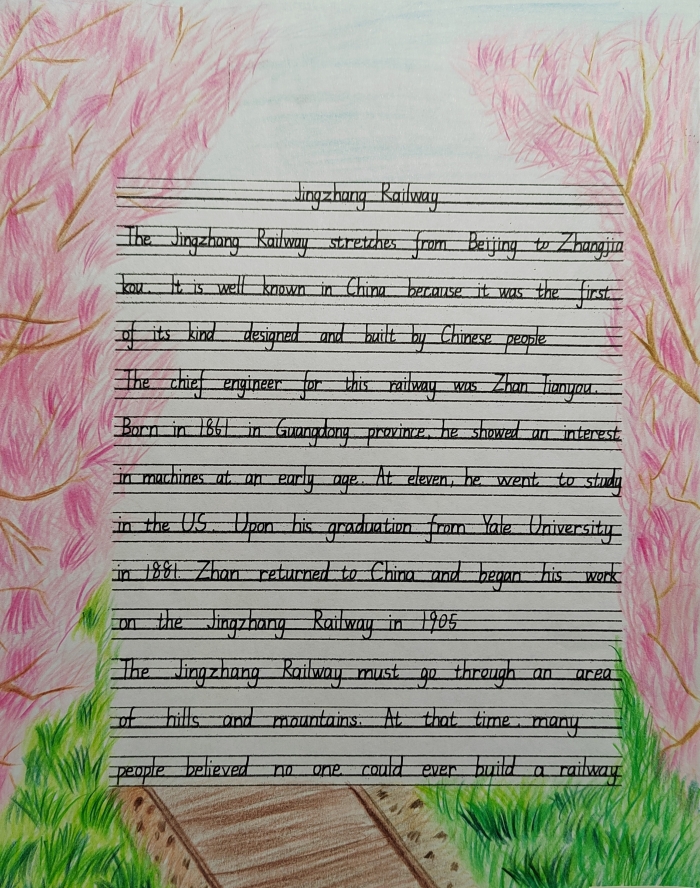 Jingzhang Railway
The Jingzhang Railway stretches from Beijing to Zhangjia
kou. It is well known in China because it was the first
of its kind designed and built by Chinese people
The chief engineer for this railway was Zhan Tianyou.
Born in 1861 in Guangdong province, he showed an interest
in machines at an early age. At eleven, he went to study
in the US. Upon his graduation from Yale University
in 1881. Zhan returned to China and began his work
on the Jingzhang Railway in 1905
The Jingzhang Railway must go through an area
of hills and mountains. At that time, many
people believed no one could ever build a railway